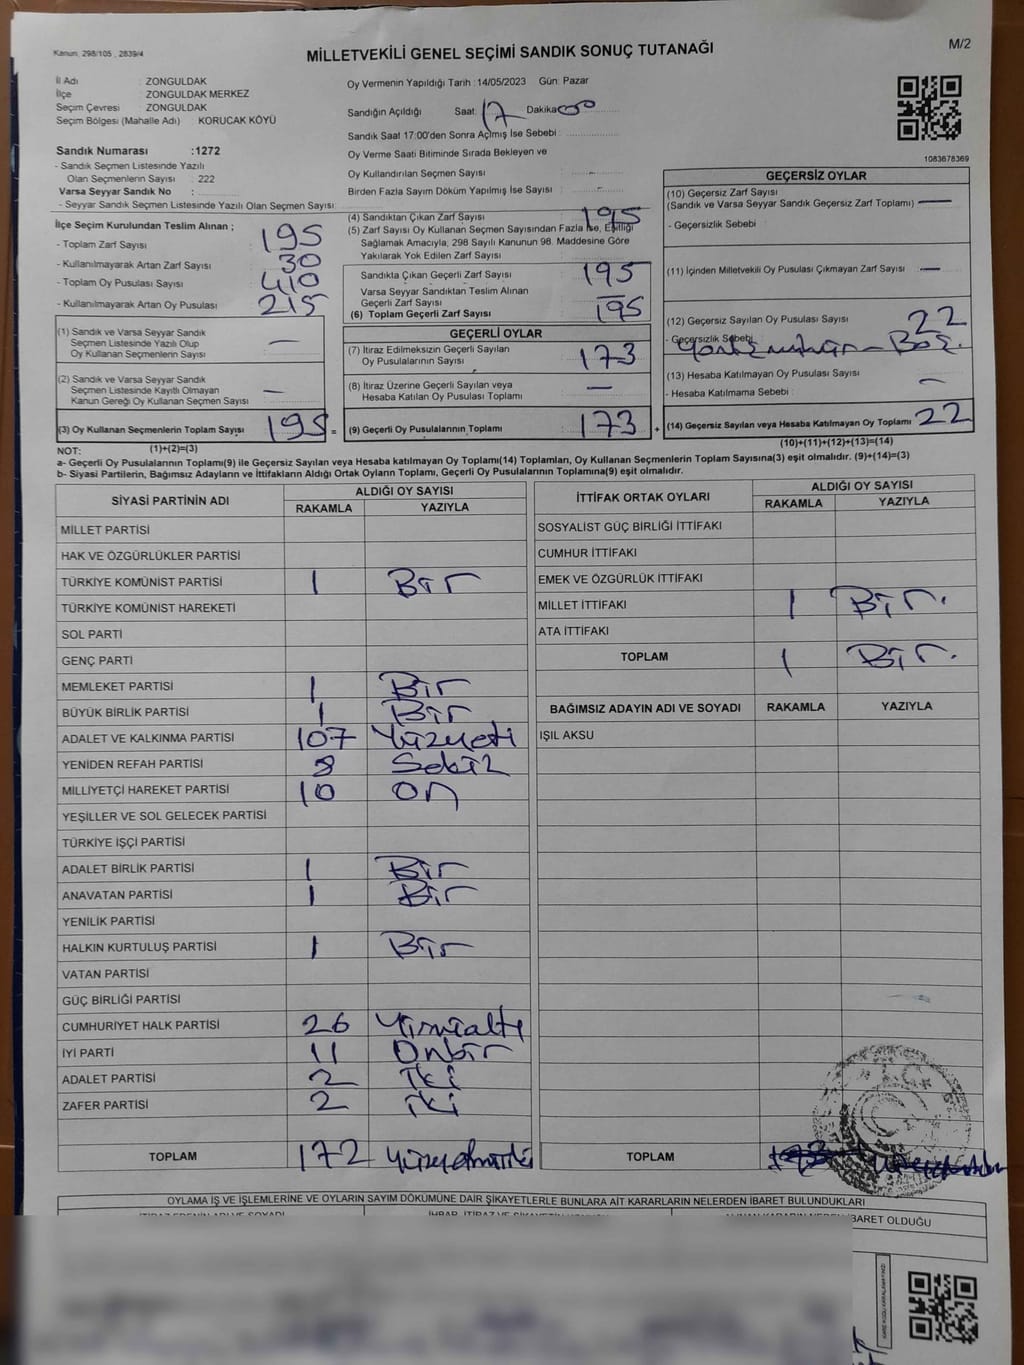 Kanun, 298/105 , 2839/4
MİLLETVEKİLİ GENEL SEÇİMİ SANDIK SONUÇ TUTANAĞI
M/2
İl Adı : ZONGULDAK
İlçe : ZONGULDAK MERKEZ
Seçim Çevresi : ZONGULDAK
Seçim Bölgesi (Mahalle Adı) : KORUCAK KÖYÜ
Sandık Numarası :1272
- Sandık Seçmen Listesinde Yazılı
Olan Seçmenlerin Sayısı : 222
Varsa Seyyar Sandık No :
- Seyyar Sandık Seçmen Listesinde Yazılı Olan Seçmen Sayısı:
Oy Vermenin Yapıldığı Tarih : 14/05/2023 Gün: Pazar
Sandığın Açıldığı Saat: 17 Dakika 00
Sandık Saat 17:00'den Sonra Açılmış İse Sebebi :
Oy Verme Saati Bitiminde Sırada Bekleyen ve
Oy Kullandırılan Seçmen Sayısı : -
Birden Fazla Sayım Döküm Yapılmış İse Sayısı : -
1083678369
İlçe Seçim Kurulundan Teslim Alınan ;
- Toplam Zarf Sayısı : 195
- Kullanılmayarak Artan Zarf Sayısı : 30
- Toplam Oy Pusulası Sayısı : 410
- Kullanılmayarak Artan Oy Pusulası : 215
(1) Sandık ve Varsa Seyyar Sandık
Seçmen Listesinde Yazılı Olup
Oy Kullanan Seçmenlerin Sayısı : —
(2) Sandık ve Varsa Seyyar Sandık
Seçmen Listesinde Kayıtlı Olmayan
Kanun Gereği Oy Kullanan Seçmen Sayısı : —
(3) Oy Kullanan Seçmenlerin Toplam Sayısı : 195 =
(1)+(2)=(3)
(4) Sandıktan Çıkan Zarf Sayısı : 195
(5) Zarf Sayısı Oy Kullanan Seçmen Sayısından Fazla İse, Eşitliği
Sağlamak Amacıyla, 298 Sayılı Kanunun 98. Maddesine Göre
Yakılarak Yok Edilen Zarf Sayısı :
Sandıkta Çıkan Geçerli Zarf Sayısı : 195
Varsa Seyyar Sandıktan Teslim Alınan
Geçerli Zarf Sayısı : —
(6) Toplam Geçerli Zarf Sayısı : 195
GEÇERLİ OYLAR
(7) İtiraz Edilmeksizin Geçerli Sayılan
Oy Pusulalarının Sayısı : 173
(8) İtiraz Üzerine Geçerli Sayılan veya
Hesaba Katılan Oy Pusulası Toplamı : —
(9) Geçerli Oy Pusulalarının Toplamı : 173 +
GEÇERSİZ OYLAR
(10) Geçersiz Zarf Sayısı
(Sandık ve Varsa Seyyar Sandık Geçersiz Zarf Toplamı) : —
- Geçersizlik Sebebi :
(11) İçinden Milletvekili Oy Pusulası Çıkmayan Zarf Sayısı : —
(12) Geçersiz Sayılan Oy Pusulası Sayısı : 22
- Geçersizlik Sebebi : Boş.
(13) Hesaba Katılmayan Oy Pusulası Sayısı : —
- Hesaba Katılmama Sebebi :
(14) Geçersiz Sayılan veya Hesaba Katılmayan Oy Toplamı : 22
(10)+(11)+(12)+(13)=(14)
NOT:
a- Geçerli Oy Pusulalarının Toplamı(9) ile Geçersiz Sayılan veya Hesaba katılmayan Oy Toplamı(14) Toplamları, Oy Kullanan Seçmenlerin Toplam Sayısına(3) eşit olmalıdır. (9)+(14)=(3)
b- Siyasi Partilerin, Bağımsız Adayların ve İttifakların Aldığı Ortak Oyların Toplamı, Geçerli Oy Pusulalarının Toplamına(9) eşit olmalıdır.
SİYASİ PARTİNİN ADI ALDIĞI OY SAYISI
RAKAMLA YAZIYLA
MİLLET PARTİSİ
HAK VE ÖZGÜRLÜKLER PARTİSİ
TÜRKİYE KOMÜNİST PARTİSİ 1 Bir
TÜRKİYE KOMÜNİST HAREKETİ
SOL PARTİ
GENÇ PARTİ
MEMLEKET PARTİSİ 1 Bir
BÜYÜK BİRLİK PARTİSİ 1 Bir
ADALET VE KALKINMA PARTİSİ 107 Yüzyedi
YENİDEN REFAH PARTİSİ 8 Sekiz
MİLLİYETÇİ HAREKET PARTİSİ 10 On
YEŞİLLER VE SOL GELECEK PARTİSİ
TÜRKİYE İŞÇİ PARTİSİ
ADALET BİRLİK PARTİSİ 1 Bir
ANAVATAN PARTİSİ 1 Bir
YENİLİK PARTİSİ
HALKIN KURTULUŞ PARTİSİ 1 Bir
VATAN PARTİSİ
GÜÇ BİRLİĞİ PARTİSİ
CUMHURİYET HALK PARTİSİ 26 Yirmialtı
İYİ PARTİ 11 Onbir
ADALET PARTİSİ 2 İki
ZAFER PARTİSİ 2 İki
TOPLAM 172 Yüzyetmişiki
İTTİFAK ORTAK OYLARI ALDIĞI OY SAYISI
RAKAMLA YAZIYLA
SOSYALİST GÜÇ BİRLİĞİ İTTİFAKI
CUMHUR İTTİFAKI
EMEK VE ÖZGÜRLÜK İTTİFAKI
MİLLET İTTİFAKI 1 Bir.
ATA İTTİFAKI
TOPLAM 1 Bir.
BAĞIMSIZ ADAYIN ADI VE SOYADI RAKAMLA YAZIYLA
IŞIL AKSU
TOPLAM
OYLAMA İŞ VE İŞLEMLERİNE VE OYLARIN SAYIM DÖKÜMÜNE DAİR ŞİKAYETLERLE BUNLARA AİT KARARLARIN NELERDEN İBARET BULUNDUKLARI
İBARET OLDUĞU